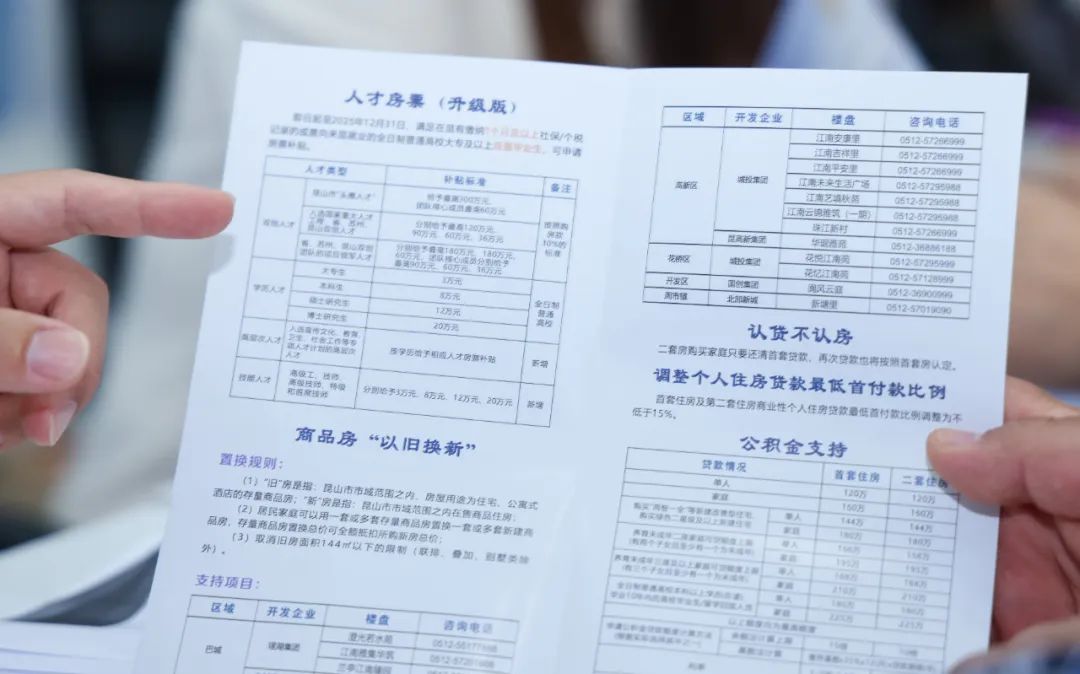 人才房票（升级版）
即日起至2025年12月31日，满足在昆有缴纳1个月及以上社保/个税
记录的或意向来昆就业的全日制普通高校大专及以上应届毕业生，可申请
房票补贴。
人才类型 补贴标准 备注
双创人才
昆山市“头雁人才”
团队核心成员最高60万元
分别给予最高120万元、
90万元、60万元、36万元
省、苏州、昆山双创
团队的项目领军人才
分别给予最高180万元、180万元、
60万元，团队核心成员分别给予
最高90万元、60万元、16万元
按照购
房款
10%的
标准
学历人才
大专生 3万元
本科生 8万元
硕士研究生 12万元
博士研究生 20万元
全日制
普通
高校
高层次人才
入选宣传文化、教育、
卫生、社会工作等专
项人才计划的高层次
人才
按学历给予相应人才房票补贴 新增
技能人才
高级工、技师、
高级技师、特级
和首席技师
分别给予3万元、8万元、12万元、20万元 新增
商品房“以旧换新”
置换规则：
（1）“旧”房是指：昆山市市域范围之内、房屋用途为住宅、公寓式
酒店的存量商品房；“新”房是指：昆山市市域范围之内在售商品住房；
（2）居民家庭可以用一套或多套存量商品房置换一套或多套新建商
品房，存量商品房置换总价可全额抵扣所购新房总价；
（3）取消旧房面积144㎡以下的限制（联排、叠加、别墅类除
外）。
支持项目：
区域 开发企业 楼盘 咨询电话
巴城
澄光若水苑
江南雅集华筑
区域 开发企业 楼盘 咨询电话
高新区 城投集团
江南安康里 0512-57266999
江南吉祥里 0512-57266999
江南平安里 0512-57266999
江南未来生活广场 0512-57295988
江南艺境秋苑 0512-57295988
江南云锦雅筑（一期） 0512-57295988
珠江新村 0512-57266999
昆高新集团 华琚雅苑 0512-36886188
花桥区 城投集团
花悦江南苑 0512-57295999
花忆江南苑 0512-57128999
开发区 国创集团 阅风云庭 0512-36900999
周市镇 北部新城 新塘里 0512-57019090
认贷不认房
二套房购买家庭只要还清首套贷款，再次贷款也将按照首套房认定。
调整个人住房贷款最低首付款比例
首套住房及第二套住房商业性个人住房贷款最低首付款比例调整为不
低于15%。
公积金支持
贷款情况 首套住房 二套住房
单人 120万 120万
家庭 150万 150万
单人 144万 144万
家庭 180万 180万
单人
家庭
单人
家庭 210万 210万
单人
家庭
以上额度均为最高额度